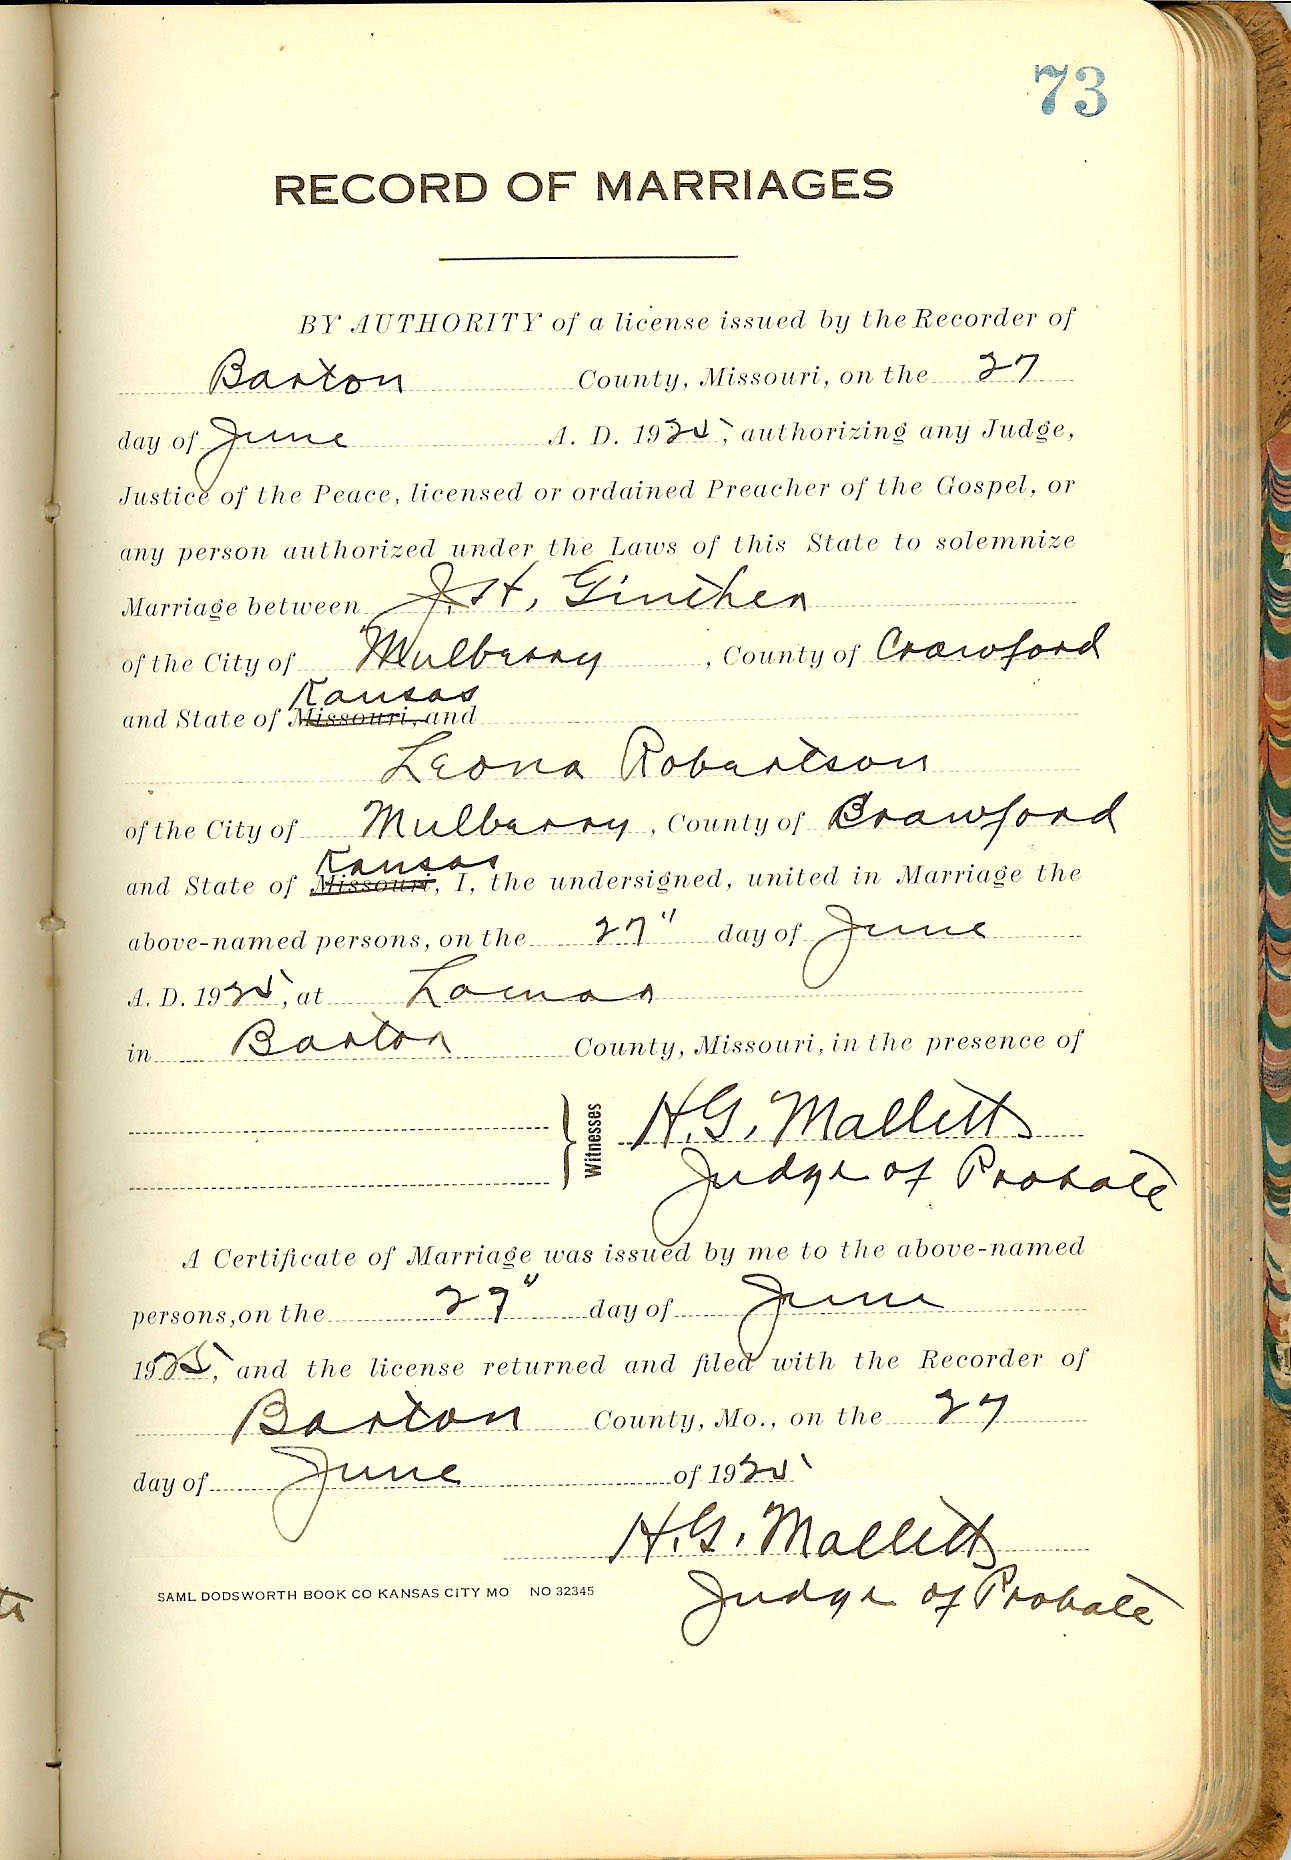 73
RECORD OF MARRIAGES
BY AUTHORITY of a license issued by the Recorder of
Barton County, Missouri, on the 27
day of June A. D. 1925, authorizing any Judge,
Justice of the Peace, licensed or ordained Preacher of the Gospel, or
any person authorized under the Laws of this State to solemnize
Marriage between J. H. Ginther
of the City of Mulberry, County of Crawford
Kansas
and State of Missouri, and
Leona Robertson
of the City of Mulberry, County of Crawford
Kansas
and State of Missouri, I, the undersigned, united in Marriage the
above-named persons, on the 27" day of June
A. D. 1925, at Lamar
in Barton County, Missouri, in the presence of
Witnesses H. G. Mallitt
Judge of Probate
A Certificate of Marriage was issued by me to the above-named
persons, on the 27" day of June
1925, and the license returned and filed with the Recorder of
Barton County, Mo., on the 27
day of June of 1925
H. G. Mallitt
Judge of Probate
SAML DODSWORTH BOOK CO KANSAS CITY MO NO 32345